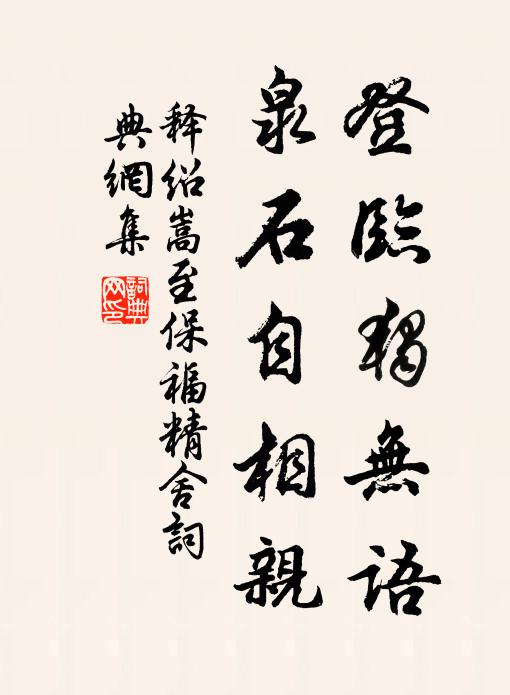 登臨獨無語
泉石自相親
释紹嵩至保福精舍詞
典網集
詞典
网印